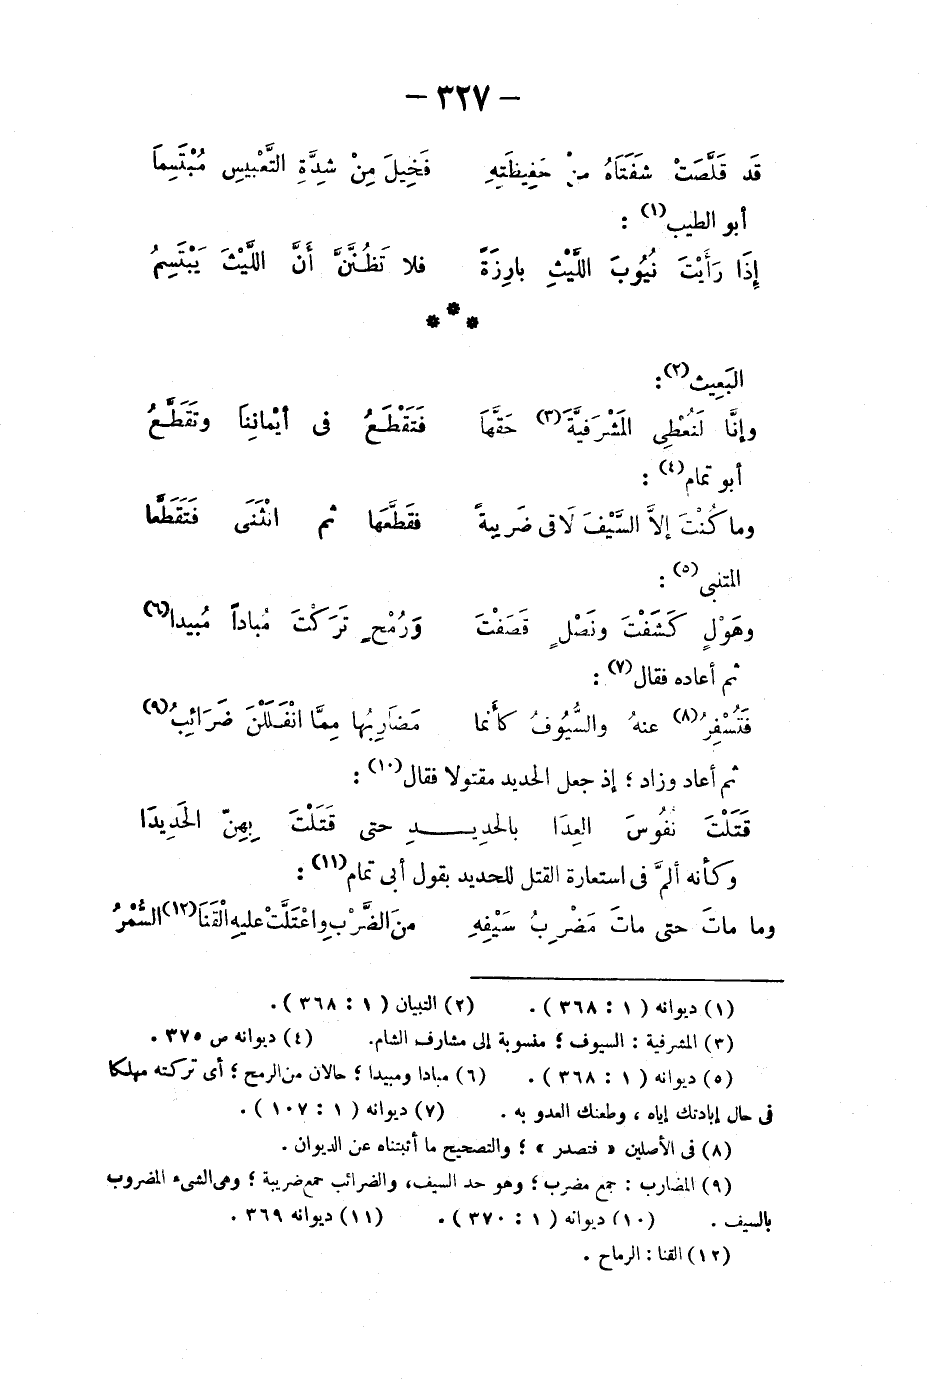 – ٣٢٧ –
قَد قَلَّصَتْ شَفَتَاهُ منْ حَفِيظَتِهِ فَخِيلَ مِنْ شِدَّةِ التَّعْبيسِ مُبْتَسِماَ
أبو الطيب(١) :
إِذَا رَأَيْتَ نُيُوبَ اللَّيْثِ بارِزَةً فلا تَظُنَّنَّ أَنَّ اللَّيْثَ يَبْتَسِمُ
* * *
البَعِيث(٢) :
وإنَّا لَنُعْطِى المَشْرَفيَّةَ(٣) حَقَّهَا فَتَقْطَعُ فى أيْماننِاَ وتَقَطَّعُ
أبو تمام(٤) :
وما كُنْتَ إلاَّ السَّيْفَ لَاقى ضَريبةً فقَطَّعَها ثم انْثَنَى فَتَقَطَّعا
المتنبى(٥) :
وهَوْلٍ كَشَفْتَ ونَصْلٍ قَصَفْتَ وَرُمْحٍ تَرَكْتَ مُباداً مُبيدا(٦)
ثم أعاده فقال(٧) :
فَتُسْفِرُ(٨) عنهُ والسُّيُوفُ كأَنما مَضَارِبُها مِمَّا انْفَلَلْنَ ضَرَائِبُ(٩)
ثم أعاد وزاد ؛ إذ جعل الحديد مقتولا فقال(١٠) :
قَتَلْتَ نفُوسَ العِدَا بالحديـــدِ حتى قَتَلْتَ بِهِنّ الحَدِيدَا
وكأنه ألمَّ فى استعارة القتل للحديد بقول أبى تمام(١١) :
وما ماتَ حتى ماتَ مَضْرِبُ سَيْفِهِ منَ الضَّرْبِ واعْتَلَّتْ عليهِ الْقَنَا(١٢) السُّمْرُ
(١) ديوانه ( ١ : ٣٦٨ ) . (٢) التبيان ( ١ : ٣٦٨ ) .
(٣) المشرفية : السيوف ؛ منسوبة إلى مشارف الشام. (٤) ديوانه ص ٣٧٥ .
(٥) ديوانه ( ١ : ٣٦٨ ) . (٦) مبادا ومبيدا ؛ حالان من الرمح ؛ أى تركته مهلكا
فى حال إبادتك إياه ، وطعنك العدو به . (٧) ديوانه ( ١ : ١٠٧ ) .
(٨) فى الأصلين « فتصدر » ؛ والتصحيح ما أثبتناه عن الديوان .
(٩) المضارب : جمع مضرب ؛ وهو حد السيف، والضرائب جمع ضريبة ؛ وهى الشىء المضروب
بالسيف . (١٠) ديوانه ( ١ : ٣٧٠ ) . (١١) ديوانه ٣٦٩ .
(١٢) القنا : الرماح .